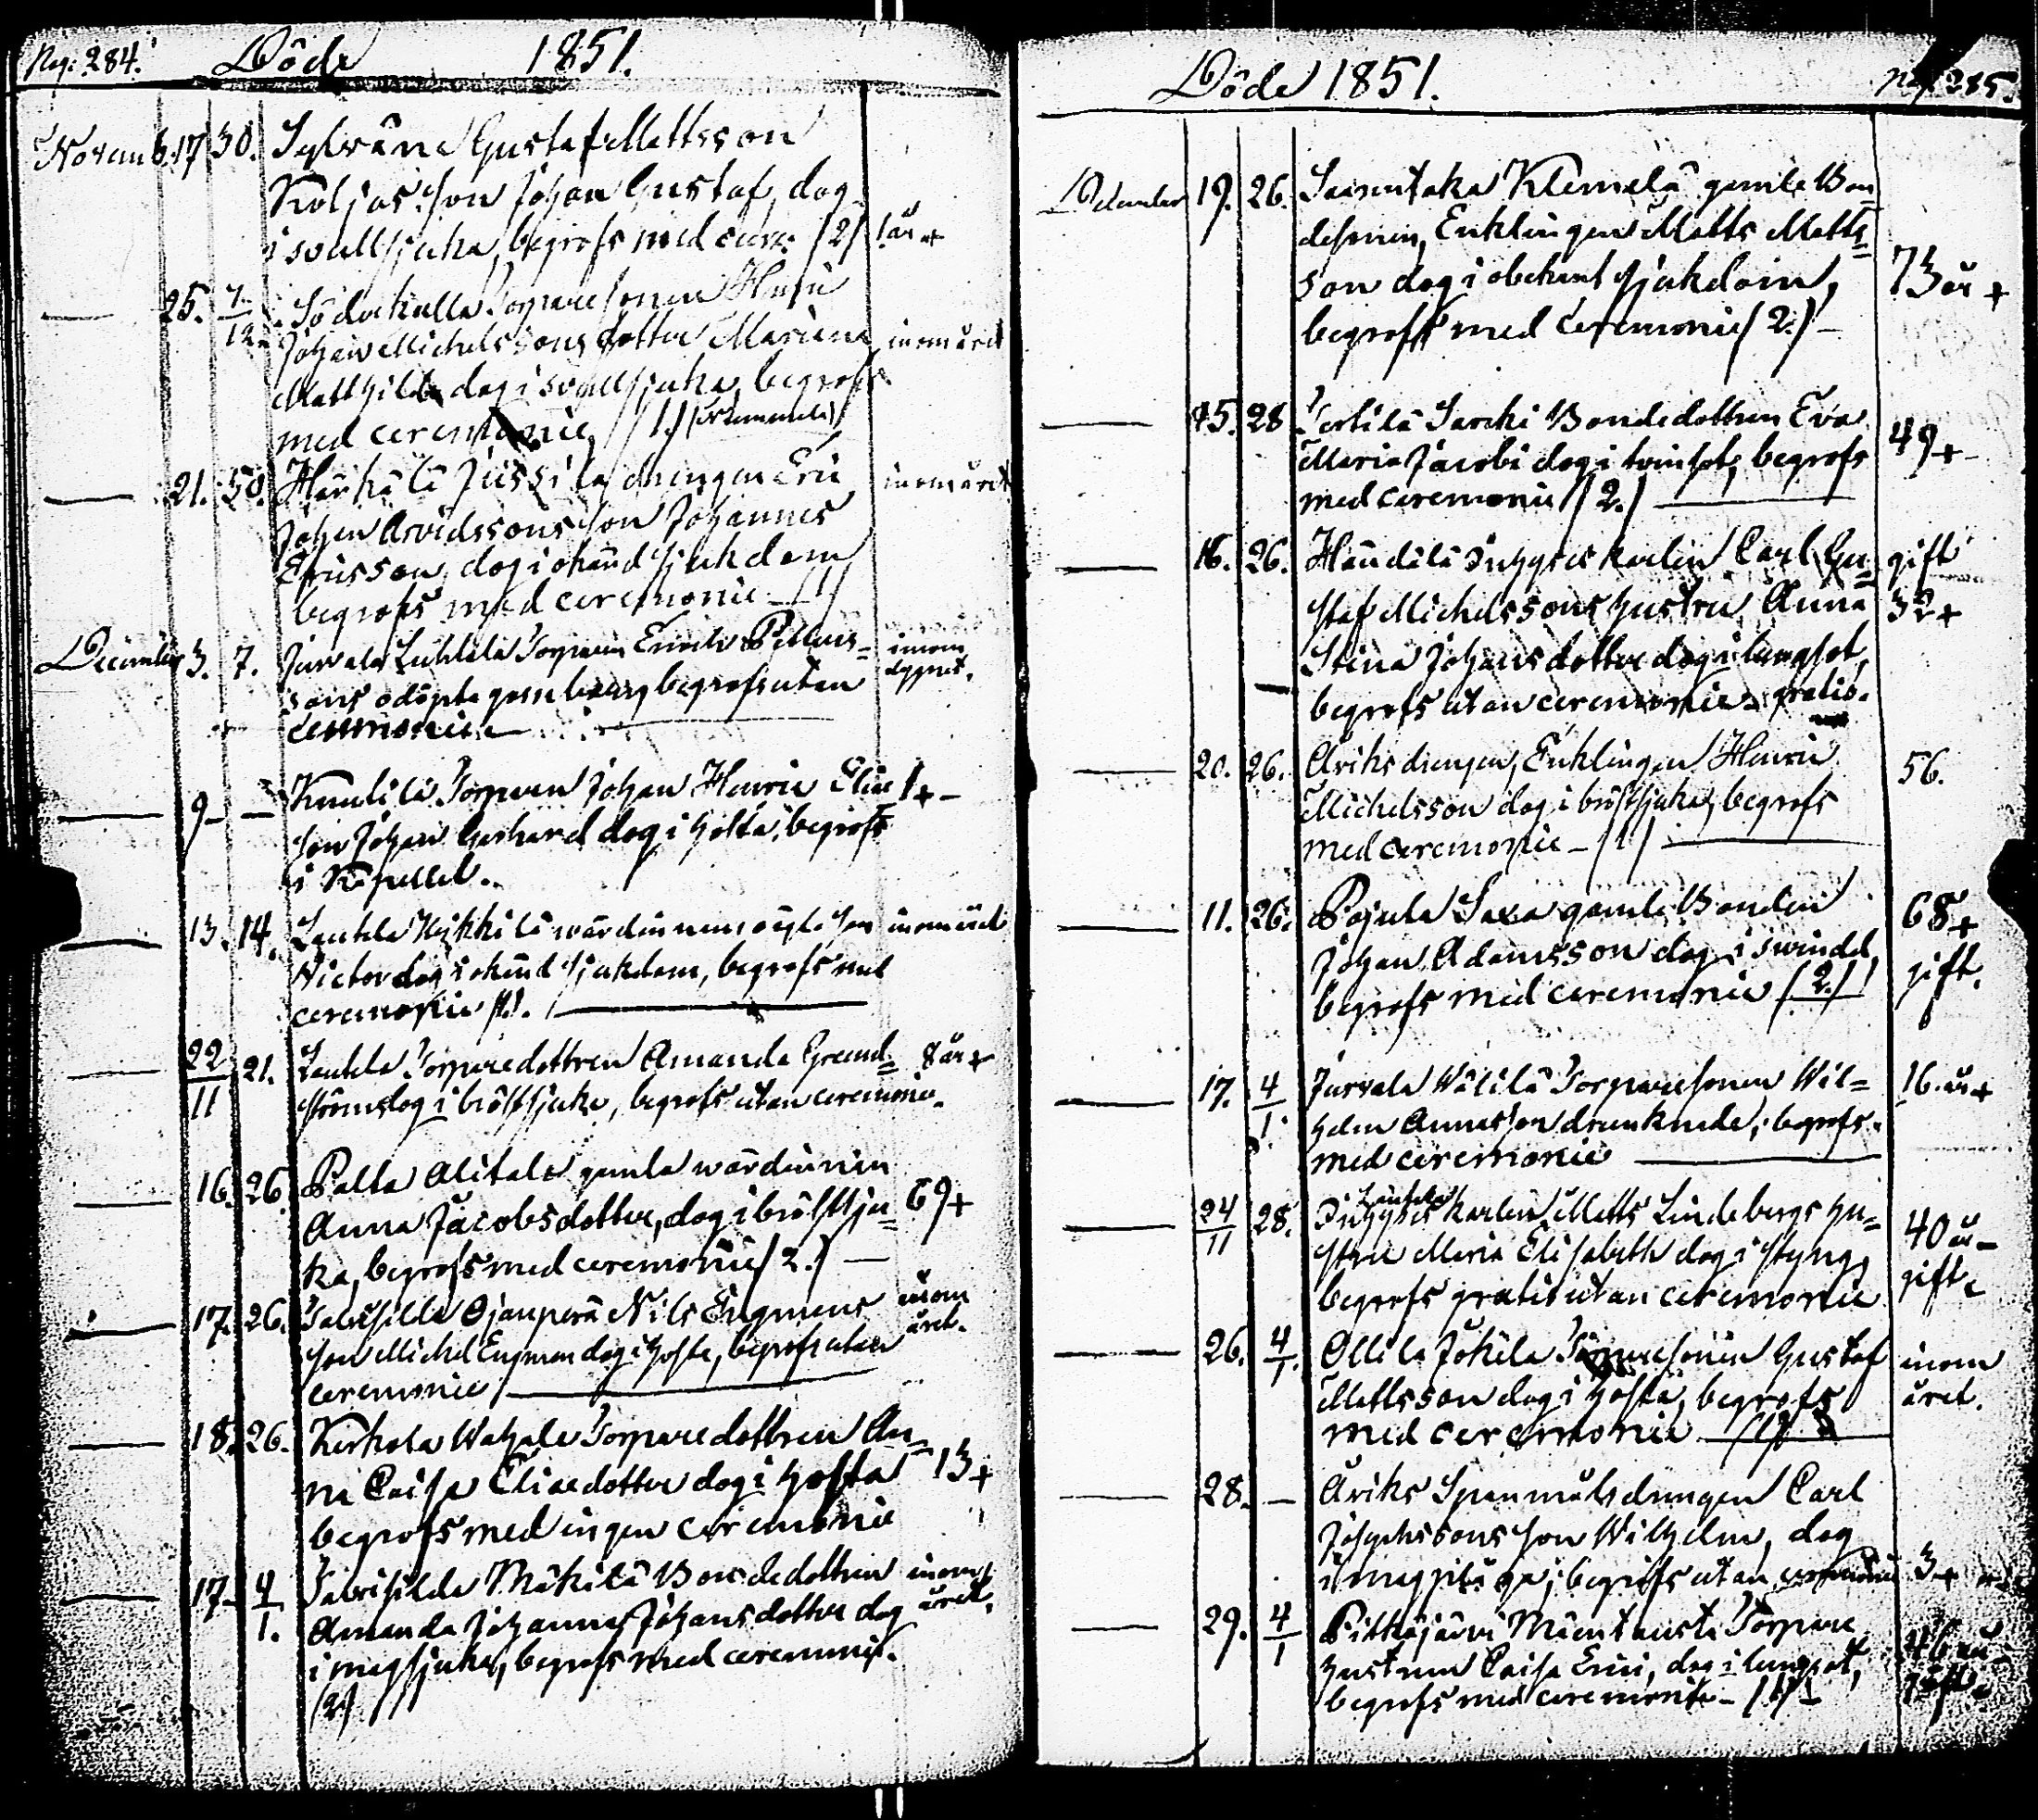 Pag: 284. Döde 1851.
Novemb. 17 30. Sylväne Gustaf Mattsson
Koljas son Johan Gustaf, dog
i svullsjuka, begrofs med cerem. (2) 1 år +
25. 7/12 Söderkulla Torparesonen
Johan Michelssons dotter Mariana inom året
Mathilda dog i svullsjuka, begrofs
med ceremonie (1.)
21. 30. Härkälä Jussila drengen Eric inom året
Johan Arvidssons son Johannes
Ericsson, dog i okänd sjukdom
begrofs med ceremonie (1)
December 3. 7. Jurvala Torparen inom
sons odöpta gossebarn, begrofs utan dygnet.
ceremonie
9 — Torparen Johan Henric 1 +
son Johan Gerhard dog i hosta, begrofs
i Kapellet.
13. 14. Lauhla Kykkilä wärdinnans oägta son inom året
Victor dog i okänd sjukdom, begrofs med
ceremonie (1).
22/11 21. Lauhla Torparedottren Amanda Grund= 8 år +
ströms dog i bröstsjuka, begrofs utan ceremonie.
16. 26. Palta Alitalo gamla wärdinnan
Anna Jacobsdotter, dog i bröstsju= 69 +
ka, begrofs med ceremonie (2.)
17. 26. Ojanperä Nils Engmans inom
son Michel Engman dog i hosta, begrofs utan året.
ceremonie
18. 26. Kerkola Wahala Torparedottren An=
na Caisa Eliaedotter dog i hosta 13 +
begrofs med ingen ceremonie
17. 4/1. Mäkilä Bondedottren inom
Amanda Johanna Johansdotter dog året.
i magsjuka, begrofs med ceremonie.
(2)
Döde 1851. Pag. 285.
December 19. 26. Klemelä gamle Bon
desonen, Enklingen Matts Matts=
son dog i obekant sjukdom, 73 år +
begrofs med ceremonie (2.)
15. 28 Tertilä Sarcki Bondedottren Eva
Maria Jacobi dog i tvinsot, begrofs 49 +
med ceremonie (2.)
16. 26. Inhyseskarlen Carl Gu= gift
staf Michelssons hustru Anna 32 +
Stina Johansdotter dog i lungsot,
begrofs utan ceremonie gratis.
20. 26. Ariks drengen, Enklingen Henric 56.
Michelsson dog i bröstsjuka, begrofs
med ceremonie (1)
11. 26. Pajula Saxa gamle Bonden 68 +
Johan Adamsson dog i svindel, gift.
begrofs med ceremonie (2.)
17. 4/1. Jurvala Wälilä Torparesonen Wil= 16 år +
helm Annasson drunknade, begrofs
med ceremonie
24/11 28. Lauhela
Inhyseskarlen Matts Lindebergs hu= 40 år
stru Maria Elisabeth dog i styng, gift
begrofs gratis utan ceremonie
26. 4/1. Ollila Jokela Torparesonen Gustaf inom
Mattsson dog i hosta, begrofs året.
med ceremonie (1)
28. — Ariks Spanmålsdrengen Carl
Josephssons son Wilhelm, dog
i magplåga, begrofs utan ceremonie 3 +
29. 4/1 Pitkäjärvi Mäentausta Torpare
hustrun Caisa Erici, dog i lungsot, 46 år
begrofs med ceremonie (1) gift